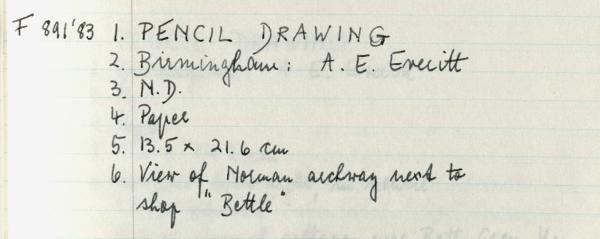 F 891'83 1. PENCIL DRAWING
2. Birmingham: A. E. Everitt
3. N.D.
4. Paper
5. 13.5 x 21.6 cm
6. View of Norman archway next to
shop "Bettle"